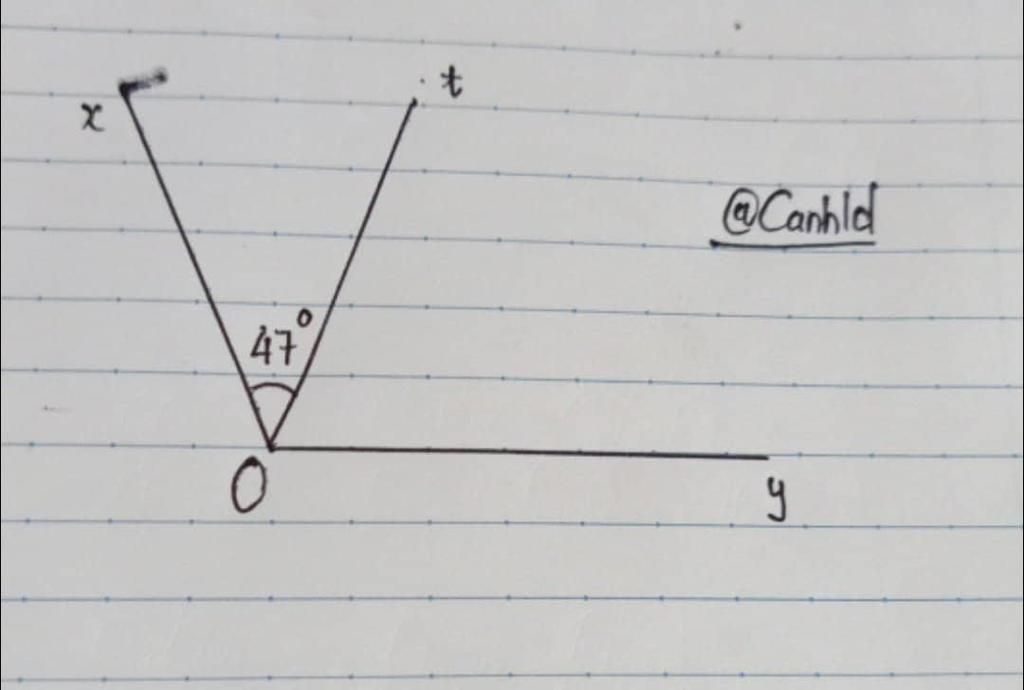 x
t
@Canhld
47°
O
y